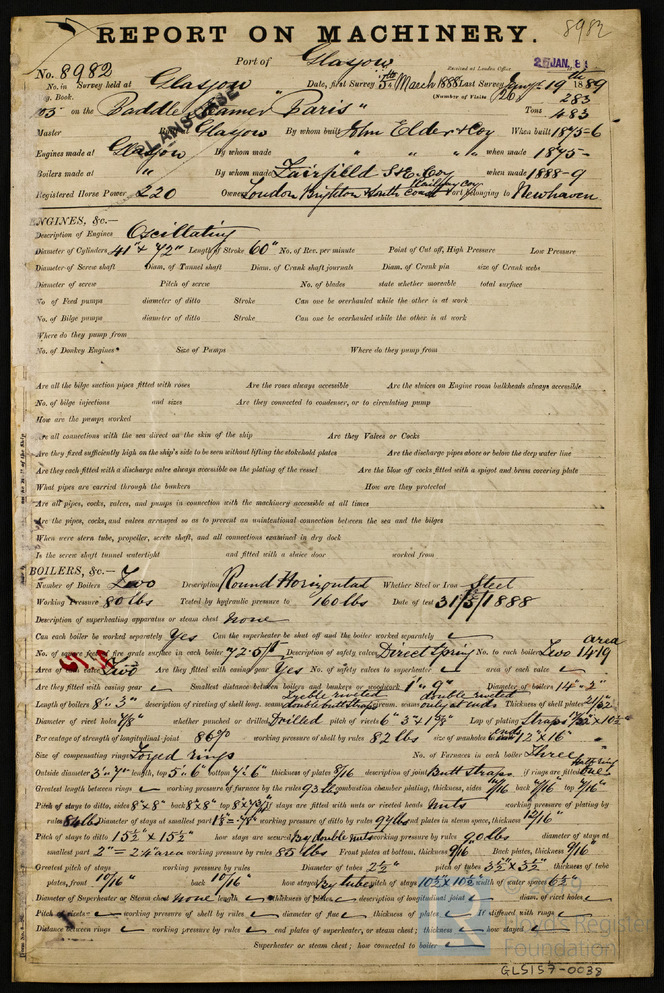 REPORT ON MACHINERY.
8982
Port of Glasgow
Received at London Office 2 JAN. 8
No. 8982
No. in Survey held at Glasgow Date, first Survey 5th March 1888 Last Survey 19th 1889
Reg. Book. (Number of Visits 26) 283
on the Paddle Steamer "Paris" Tons 483
LANGEASE
Master Glasgow By whom built John Elder & Coy When built 1875-6
Engines made at Glasgow By whom made " " " " when made 1875-
Boilers made at " By whom made Fairfield S & E. Coy when made 1888-9
Registered Horse Power 220 Owners London Brighton & South Coast Railway Coy Port belonging to Newhaven
ENGINES, &c.—
Description of Engines Oscillating
Diameter of Cylinders 41" & 72" Length of Stroke 60" No. of Rev. per minute Point of Cut off, High Pressure Low Pressure
Diameter of Screw shaft Diam. of Tunnel shaft Diam. of Crank shaft journals Diam. of Crank pin size of Crank webs
Diameter of screw Pitch of screw No. of blades state whether moveable total surface
No of Feed pumps diameter of ditto Stroke Can one be overhauled while the other is at work
No. of Bilge pumps diameter of ditto Stroke Can one be overhauled while the other is at work
Where do they pump from
No. of Donkey Engines Size of Pumps Where do they pump from
Are all the bilge suction pipes fitted with roses Are the roses always accessible Are the sluices on Engine room bulkheads always accessible
No. of bilge injections and sizes Are they connected to condenser, or to circulating pump
How are the pumps worked
Are all connections with the sea direct on the skin of the ship Are they Valves or Cocks
Are they fixed sufficiently high on the ship's side to be seen without lifting the stokehold plates Are the discharge pipes above or below the deep water line
Are they each fitted with a discharge valve always accessible on the plating of the vessel Are the blow off cocks fitted with a spigot and brass covering plate
What pipes are carried through the bunkers How are they protected
Are all pipes, cocks, valves, and pumps in connection with the machinery accessible at all times
Are the pipes, cocks, and valves arranged so as to prevent an unintentional connection between the sea and the bilges
When were stern tube, propeller, screw shaft, and all connections examined in dry dock
Is the screw shaft tunnel watertight and fitted with a sluice door worked from
BOILERS, &c.—
Number of Boilers Two Description Round Horizontal Whether Steel or Iron Steel
Working Pressure 80 lbs Tested by hydraulic pressure to 160 lbs Date of test 31/5/1888
Description of superheating apparatus or steam chest none
Can each boiler be worked separately Yes Can the superheater be shut off and the boiler worked separately
No. of square feet of fire grate surface in each boiler 72.5 ft Description of safety valves Direct Spring No. to each boiler Two area 14.19
Area of each valve Two Are they fitted with easing gear Yes No. of safety valves to superheater area of each valve
Are they fitted with easing gear Smallest distance between boilers and bunkers or woodwork 1' 9" Diameter of boilers 14' 2"
Length of boilers 8' 3" description of riveting of shell long. seams Treble riveted double butt straps circum. seams double riveted only at ends Thickness of shell plates 21/32"
Diameter of rivet holes 7/8" whether punched or drilled Drilled pitch of rivets 6" 3" 1 7/8" Lap of plating
Per centage of strength of longitudinal joint 86% working pressure of shell by rules 82 lbs size of manholes 12" x 16"
Size of compensating rings Forged rings No. of Furnaces in each boiler Three
Outside diameter 3' 7" length, top 5' 6" bottom 7' 6" thickness of plates 8/16 description of joint Butt Straps if rings are fitted
Greatest length between rings working pressure of furnace by the rules 93 lbs combustion chamber plating, thickness, sides 9/16 back 9/16 top 9/16
Pitch of stays to ditto, sides 8" x 8" back 8" x 8" top If stays are fitted with nuts or riveted heads nuts working pressure of plating by
rules 84 lbs Diameter of stays at smallest part working pressure of ditto by rules 97 lbs end plates in steam space, thickness 12/16"
Pitch of stays to ditto 15 1/2" x 15 1/2" how stays are secured By double nuts working pressure by rules 90 lbs diameter of stays at
smallest part 2" = 2.4" area working pressure by rules 85 lbs Front plates at bottom, thickness 9/16 Back plates, thickness 9/16"
Greatest pitch of stays working pressure by rules Diameter of tubes 2 1/2" pitch of tubes 3 1/2" x 3 1/2" thickness of tube
plates, front 10/16" back 10/16 how stayed By tubes pitch of stays 10 1/2 x 10 1/2 width of water spaces 6 1/2
Diameter of Superheater or Steam chest none length thickness of plates description of longitudinal joint diam. of rivet holes
Pitch of rivets working pressure of shell by rules diameter of flue thickness of plates If stiffened with rings
Distance between rings working pressure by rules end plates of superheater, or steam chest; thickness how stayed
Superheater or steam chest; how connected to boiler
© 2019
Lloyds Register
Foundation
GLS157-0038